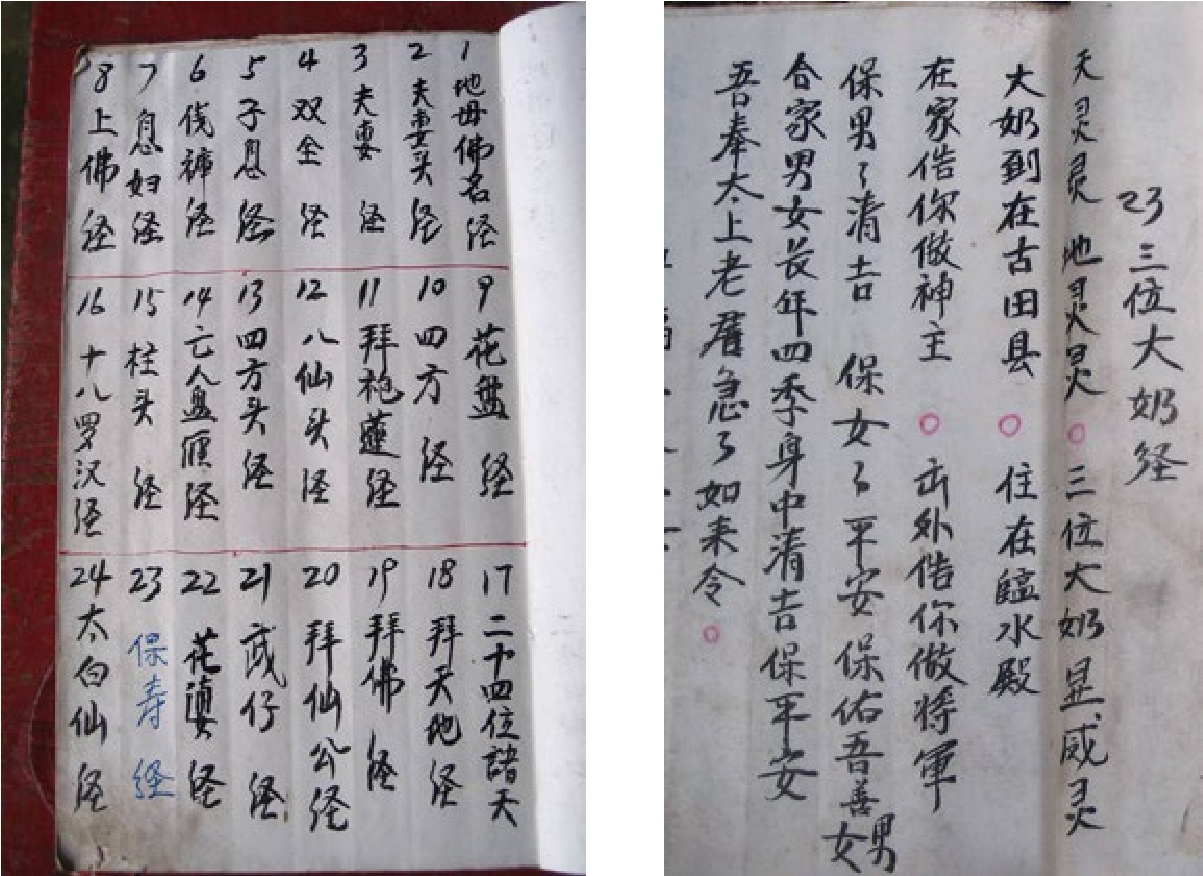 1 地母佛名経
2 夫妻头経
3 夫妻経
4 双全経
5 子息経
6 裤経
7 息妇経
8 上佛経
9 花盘経
10 四方経
11 拜袍蓮経
12 八仙头経
13 四方头経
14 亡人盘経
15 柱头経
16 十八罗汉経
17 二十四位諸天
18 拜天地経
19 拜佛経
20 拜仙公経
21 仔経
22 花経
23 保寿経
24 太白仙経
23 三位大奶経
天灵灵 地灵灵 三位大奶显威灵
大奶到在古田县 住在水殿
在家偖你做神主 出外偖你做将軍
保男了清吉 保女了平安 保佑吾善男女
合家男女长年四季身中清吉保平安
吾奉太上老君急了如来令